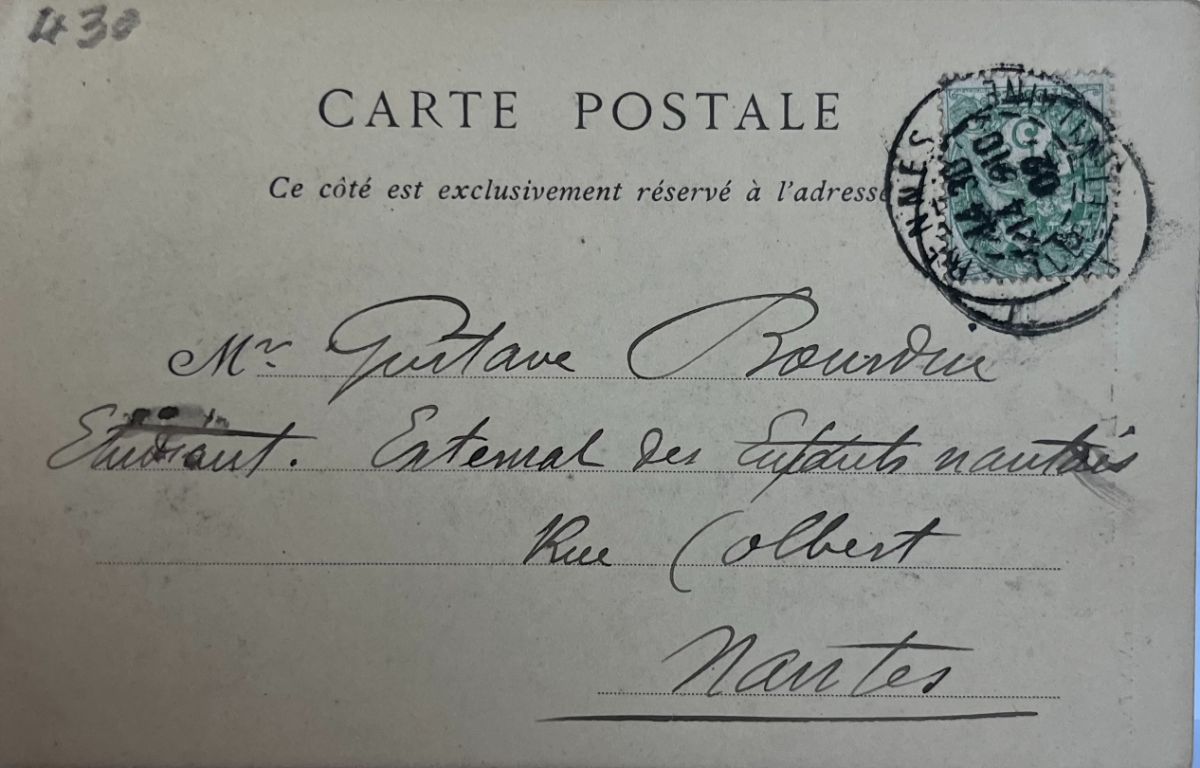 430
CARTE POSTALE
Ce côté est exclusivement réservé à l'adresse
RENNES
ILLE-ET-VILAINE
14 30
9 10
02
5
Mr Gustave Bourdin
Etudiant. Externat des Enfants nantais
Rue Colbert
Nantes